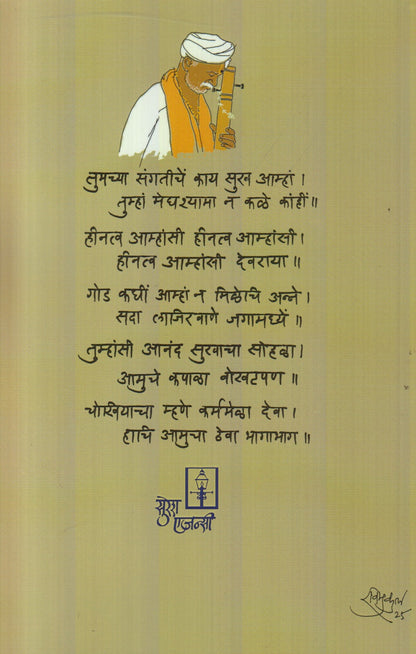 तुमच्या संगतीचें काय सुख आम्हां ।
तुम्हां मेघश्यामा न कळे कांहीं ॥
हीनत्व आम्हांसी हीनत्व आम्हांसी ।
हीनत्व आम्हांसी देवराया ॥
गोड कधीं आम्हां न मिळेचि अन्न ।
सदा लाजिरवाणे जगामध्यें ॥
तुम्हांसी आनंद सुखाचा सोहळा ।
आमुचे कपाळा वोखटपण ॥
चोखियाचा म्हणे कर्ममेळा देवा ।
हाचि आमुचा ठेवा भागाभाग ॥
सुरेश
एजन्सी
25